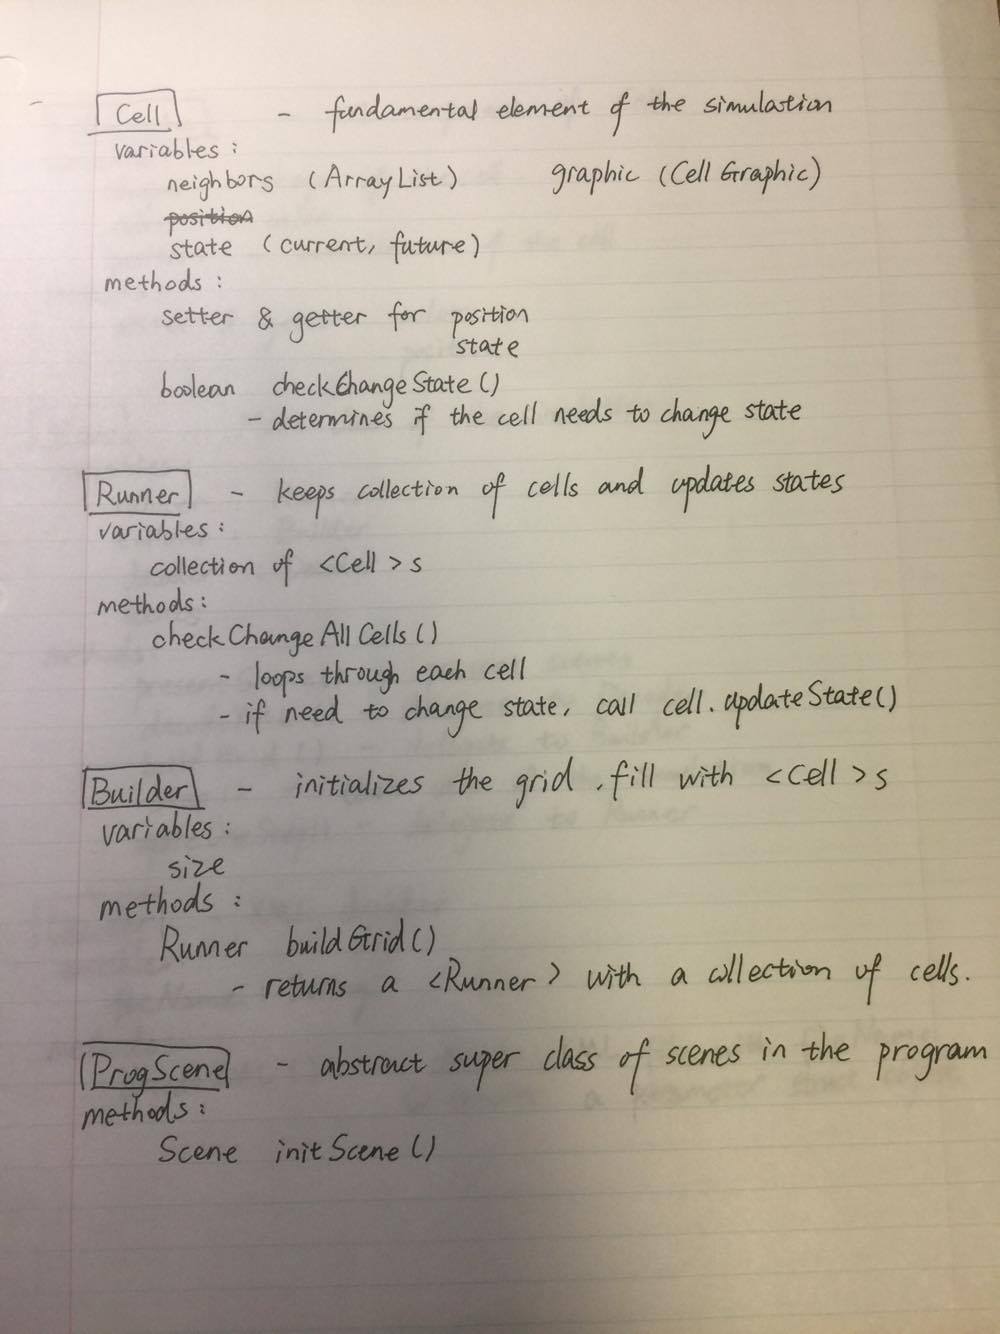 Cell - fundamental element of the simulation
variables:
neighbors (ArrayList) graphic (Cell Graphic)
position
state (current, future)
methods:
setter & getter for position
state
boolean checkChangeState()
- determines if the cell needs to change state
Runner - keeps collection of cells and updates states
variables:
collection of <Cell>s
methods:
checkChangeAllCells()
- loops through each cell
- if need to change state, call cell.updateState()
Builder - initializes the grid, fill with <Cell>s
variables:
size
methods:
Runner buildGrid()
- returns a <Runner> with a collection of cells.
ProgScene - abstract super class of scenes in the program
methods:
Scene initScene()